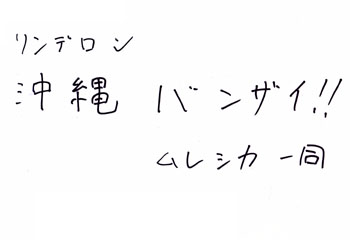 リンデロン
沖縄 バンザイ!!
ムレシカ一同